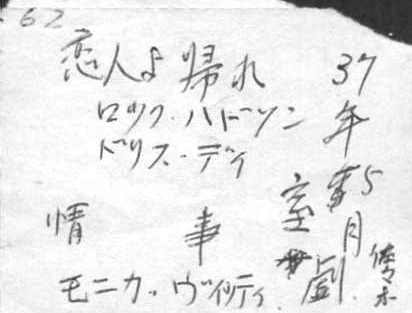 62
恋人よ帰れ
ロック・ハドソン
ドリス・デイ
情事
モニカ・ヴィッティ
37年5月
室劇
佐々木